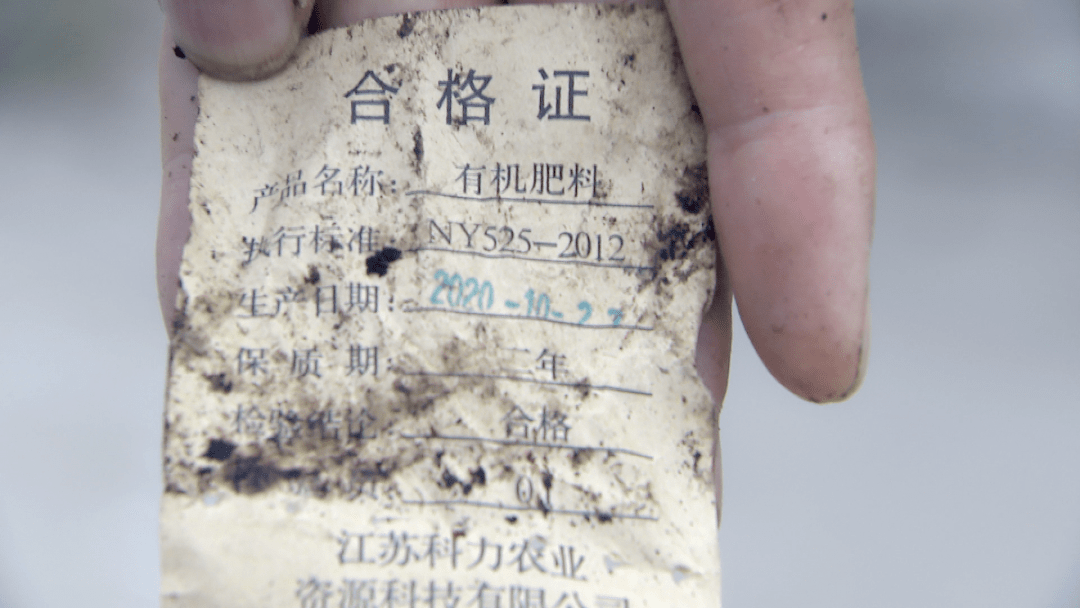 合格证
产品名称：有机肥料
执行标准：NY525-2012
生产日期：2020-10-27
保 质 期：三年
检验结论：合格
员：01
江苏科力农业
资源科技有限公司